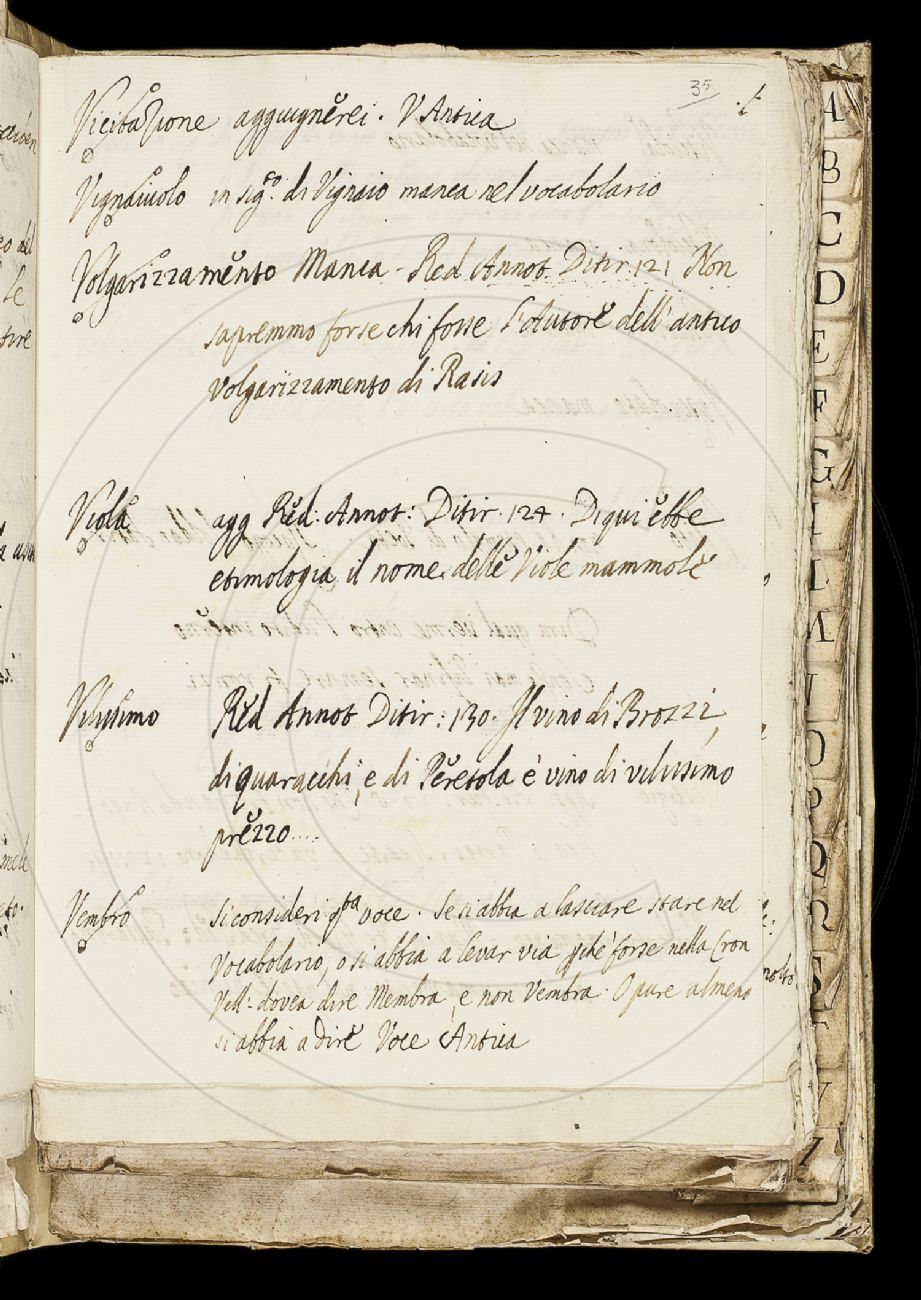 35
Vicitazione aggiugnerei. V Antica
Vignaiuolo in sigº. di Vignaio manca nel vocabolario
Volgarizzamento Manca. Red Annot. Ditir. 121 Non
sapremmo forse chi fosse l'Autore dell' antico
Volgarizzamento di Rasis
Viola agg Red. Annot: Ditir. 124. Di qui ebbe
etimologia il nome delle Viole mammole
Vilissimo Red Annot Ditir: 130. Il vino di Brozzi,
di quaracchi, e di Peretola è vino di vilissimo
prezzo....
Vembro si consideri qta voce. Se si abbia a lasciare stare nel
Vocabolario, o si abbia a levar via pchè forse nella Cron
Vell: dovea dire Membra, e non Vembra. Opure almeno
si abbia a dire Voce Antica
A
B
C
D
E
F
G
I
L
M
N
O
P
Q
R
S
T
V
Z